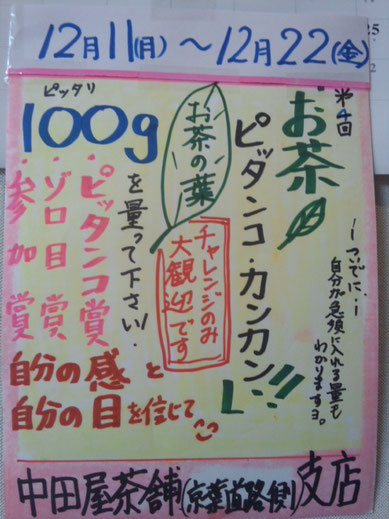 12月11(月)～12月22(金)
第4回
お茶
ピッタンコ・カンカン!!!
お茶の葉
ピッタリ
100g
を量って下さい!
・ピッタンコ賞
・ゾロ目賞
・参加賞
チャレンジのみ
大観迎です
ーついでに…ー
自分が急須に入れる量も
わかりますヨ。
自分の感と
自分の目を信じて
中田屋茶舗(京葉道路側)支店